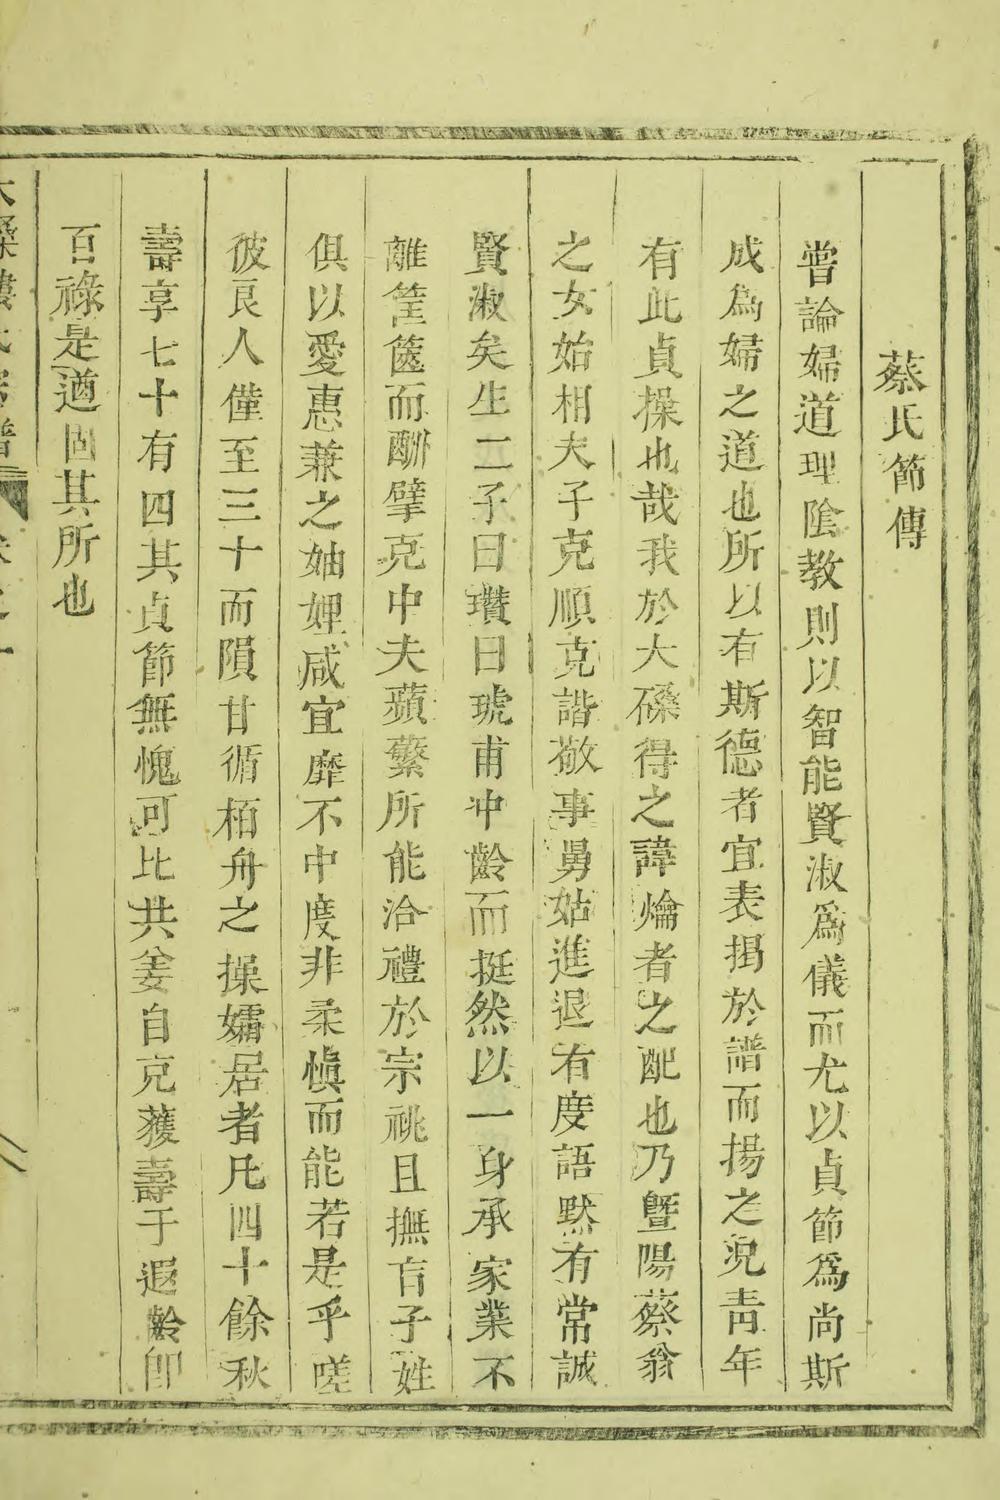 蔡氏節傳
嘗論婦道理陰教則以智能賢淑爲儀而尤以貞節爲尚斯
成爲婦之道也所以有斯德者宜表揭於譜而揚之況靑年
有此貞操也哉我於大磉得之諱爚者之配也乃曁陽蔡翁
之女始相夫子克順克諧敬事舅姑進退有度語默有常誠
賢淑矣生二子曰瓚曰琥甫冲齡而挺然以一身承家業不
離筐篋而酬擘克中夫蘋蘩所能洽禮於宗祧且撫育子姓
俱以愛惠兼之妯娌咸宜靡不中度非柔愼而能若是乎嗟
彼良人僅至三十而隕甘循栢舟之操孀居者凡四十餘秋
壽享七十有四其貞節無愧可比共姜自克獲壽于遐齡卽
百祿是遒固其所也